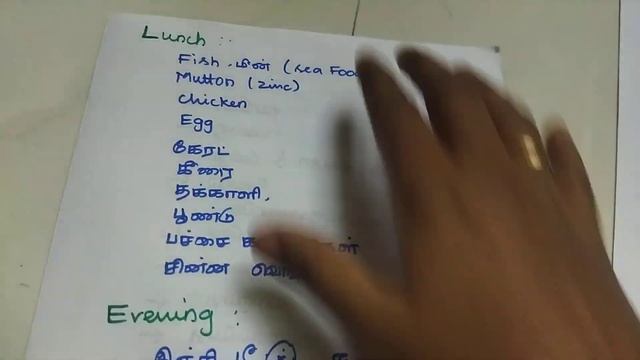 Lunch :-
Fish . மீன் (sea Food
Mutton (zinc)
chicken
Egg
கேரட்
கீரை
தக்காளி,
பூண்டு
பச்சை
சின்ன
Evening :